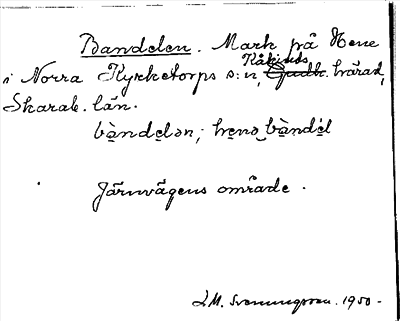 Bandelen. Mark på Hene
i Norra Kyrketorps s:n, Kåkinds härad,
Skarab. län.
bàndelən; henə bàndél
Järnvägens område.
L.M. Svenungsson. 1950-